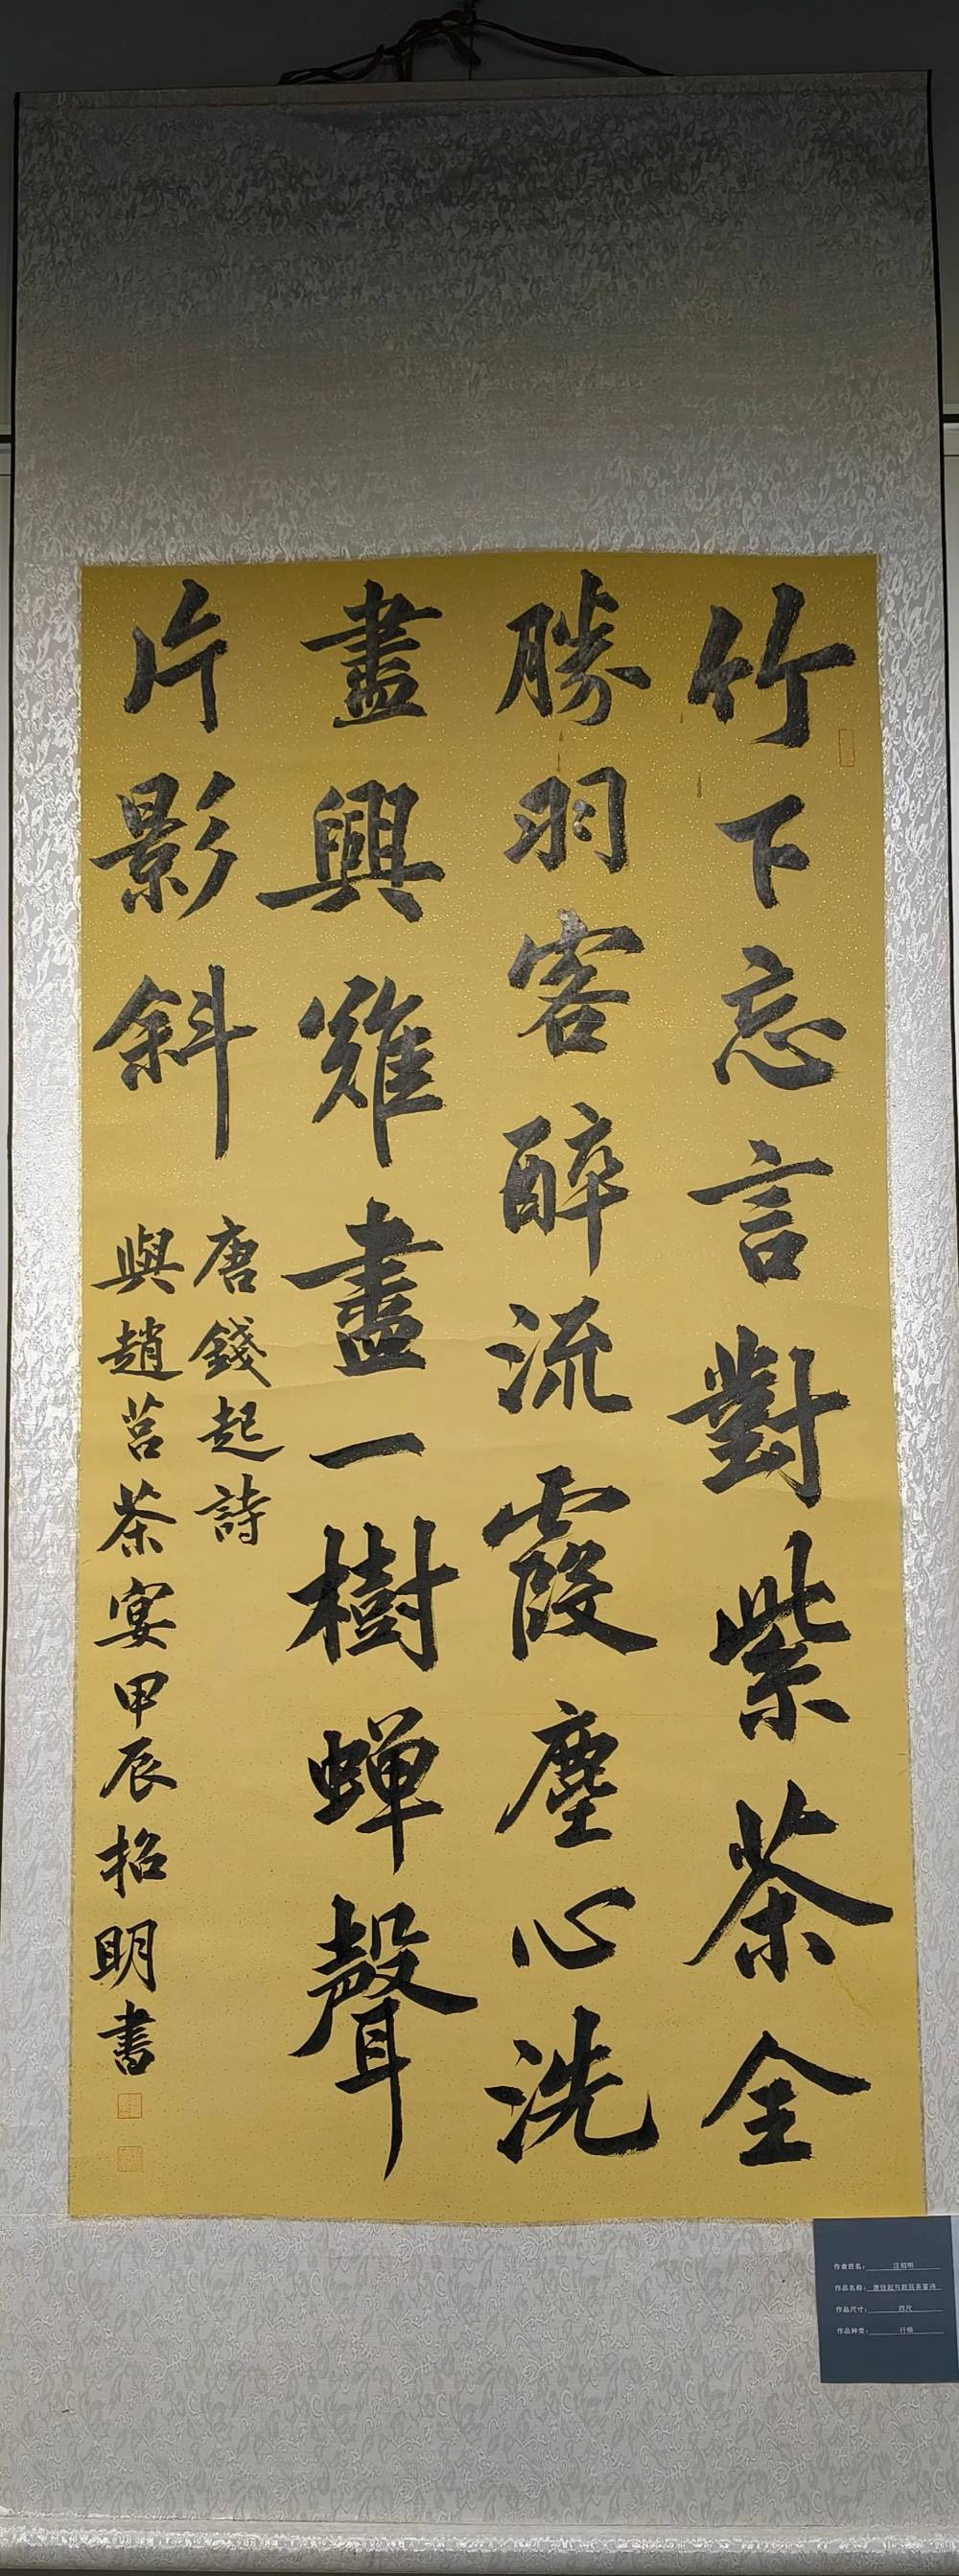 竹下忘言對紫茶全
勝羽客醉流霞塵心洗
盡興難盡一樹蝉聲
片影斜
唐錢起詩
與趙莒茶宴甲辰招明書
作者姓名：汪招明
作品名称：唐钱起与赵莒茶宴诗
作品尺寸：四尺
作品种类：行楷